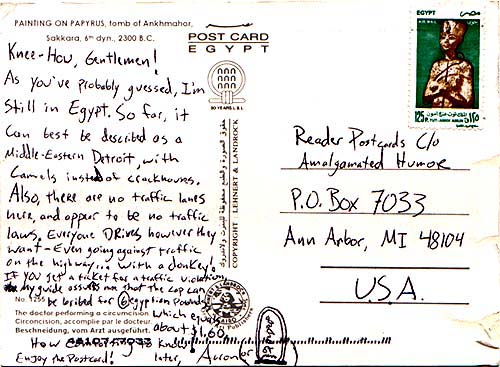 PAINTING ON PAPYRUS, tomb of Ankhmahor,
Sakkara, 6th dyn., 2300 B.C.
Knee-How, Gentlemen!
As you've probably guessed, I'm
still in Egypt. So far, it
can best be described as a
Middle-Eastern Detroit, with
Camels instead of crackhouses.
Also, there are no traffic lanes
here, and appear to be no traffic
laws. Everyone DRives however they
want - Even going against traffic
on the highway... with a donkey!
If you get a ticket for a traffic violation,
my guide assures me that the cop can
be bribed for 6 egyptian pounds,
which equals
about $1.60.
No. 1255
The doctor performing a circumcision.
Circoncision, accomplie par le docteur.
Beschneidung, vom Arzt ausgeführt.
How to know!
Enjoy the Postcard!
later, Aaron
POST CARD
EGYPT
90 YEARS L&L
COPYRIGHT LEHNERT & LANDROCK
EGYPT مصر
AIR MAIL
125 P. TUT-ANKH-AMUN ١٢٥
Reader Postcards c/o
Amalgamated Humor
P.O. Box 7033
Ann Arbor, MI 48104
U.S.A.